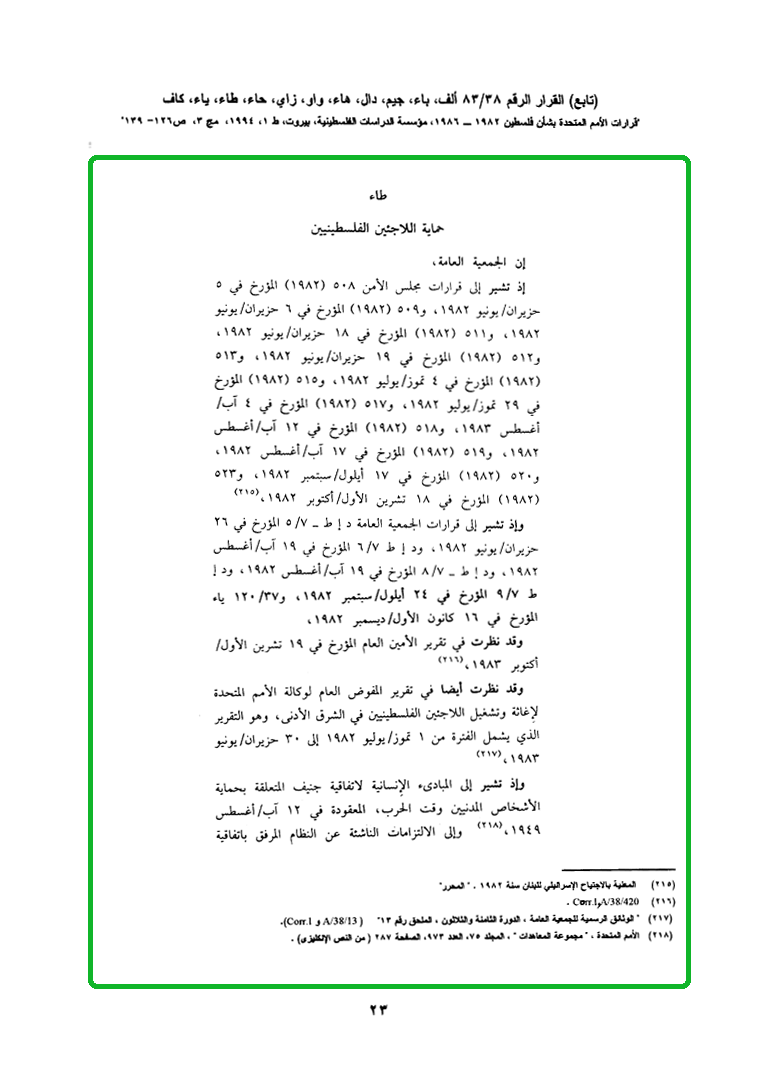 (تابع) القرار الرقم ٨٣/٣٨ ألف، باء، جيم، دال، هاء، واو، زاي، حاء، طاء، ياء، كاف
"قرارات الأمم المتحدة بشأن فلسطين ١٩٨٢ ــ ١٩٨٦، مؤسسة الدراسات الفلسطينية، بيروت، ط ١، ١٩٩٤، مج ٣، ص١٢٦- ١٣٩"
طاء
حماية اللاجئين الفلسطينيين
إن الجمعية العامة،
إذ تشير إلى قرارات مجلس الأمن ٥٠٨ (١٩٨٢) المؤرخ في ٥
حزيران/يونيو ١٩٨٢، و٥٠٩ (١٩٨٢) المؤرخ في ٦ حزيران/يونيو
١٩٨٢، و٥١١ (١٩٨٢) المؤرخ في ١٨ حزيران/يونيو ١٩٨٢،
و٥١٢ (١٩٨٢) المؤرخ في ١٩ حزيران/يونيو ١٩٨٢، و٥١٣
(١٩٨٢) المؤرخ في ٤ تموز/يوليو ١٩٨٢، و٥١٥ (١٩٨٢) المؤرخ
في ٢٩ تموز/يوليو ١٩٨٢، و٥١٧ (١٩٨٢) المؤرخ في ٤ آب/
أغسطس ١٩٨٣، و٥١٨ (١٩٨٢) المؤرخ في ١٢ آب/أغسطس
١٩٨٢، و٥١٩ (١٩٨٢) المؤرخ في ١٧ آب/أغسطس ١٩٨٢،
و٥٢٠ (١٩٨٢) المؤرخ في ١٧ أيلول/سبتمبر ١٩٨٢، و٥٢٣
(١٩٨٢) المؤرخ في ١٨ تشرين الأول/أكتوبر ١٩٨٢،(٢١٥)
وإذ تشير إلى قرارات الجمعية العامة د إ ط ــ ٥/٧ المؤرخ في ٢٦
حزيران/يونيو ١٩٨٢، ود إ ط ٦/٧ المؤرخ في ١٩ آب/أغسطس
١٩٨٢، ود إ ط ــ ٨/٧ المؤرخ في ١٩ آب/أغسطس ١٩٨٢، ود إ
ط ٩/٧ المؤرخ في ٢٤ أيلول/سبتمبر ١٩٨٢، و١٢٠/٣٧ ياء
المؤرخ في ١٦ كانون الأول/ديسمبر ١٩٨٢،
وقد نظرت في تقرير الأمين العام المؤرخ في ١٩ تشرين الأول/
أكتوبر ١٩٨٣،(٢١٦)
وقد نظرت أيضا في تقرير المفوض العام لوكالة الأمم المتحدة
لإغاثة وتشغيل اللاجئين الفلسطينيين في الشرق الأدنى، وهو التقرير
الذي يشمل الفترة من ١ تموز/يوليو ١٩٨٢ إلى ٣٠ حزيران/يونيو
١٩٨٣،(٢١٧)
وإذ تشير إلى المبادىء الإنسانية لاتفاقية جنيف المتعلقة بحماية
الأشخاص المدنيين وقت الحرب، المعقودة في ١٢ آب/أغسطس
١٩٤٩،(٢١٨) وإلى الالتزامات الناشئة عن النظام المرفق باتفاقية
(٢١٥) المعنية بالاجتياح الإسرائيلي للبنان سنة ١٩٨٢ . "المحرر"
(٢١٦) A/38/420وCorr.1 .
(٢١٧) "الوثائق الرسمية للجمعية العامة ، الدورة الثامنة والثلاثون ، الملحق رقم ١٣" (A/38/13 و Corr.1).
(٢١٨) الأمم المتحدة ، "مجموعة المعاهدات" ، المجلد ٧٥، العدد ٩٧٣، الصفحة ٢٨٧ (من النص الإنكليزي) .
٢٣